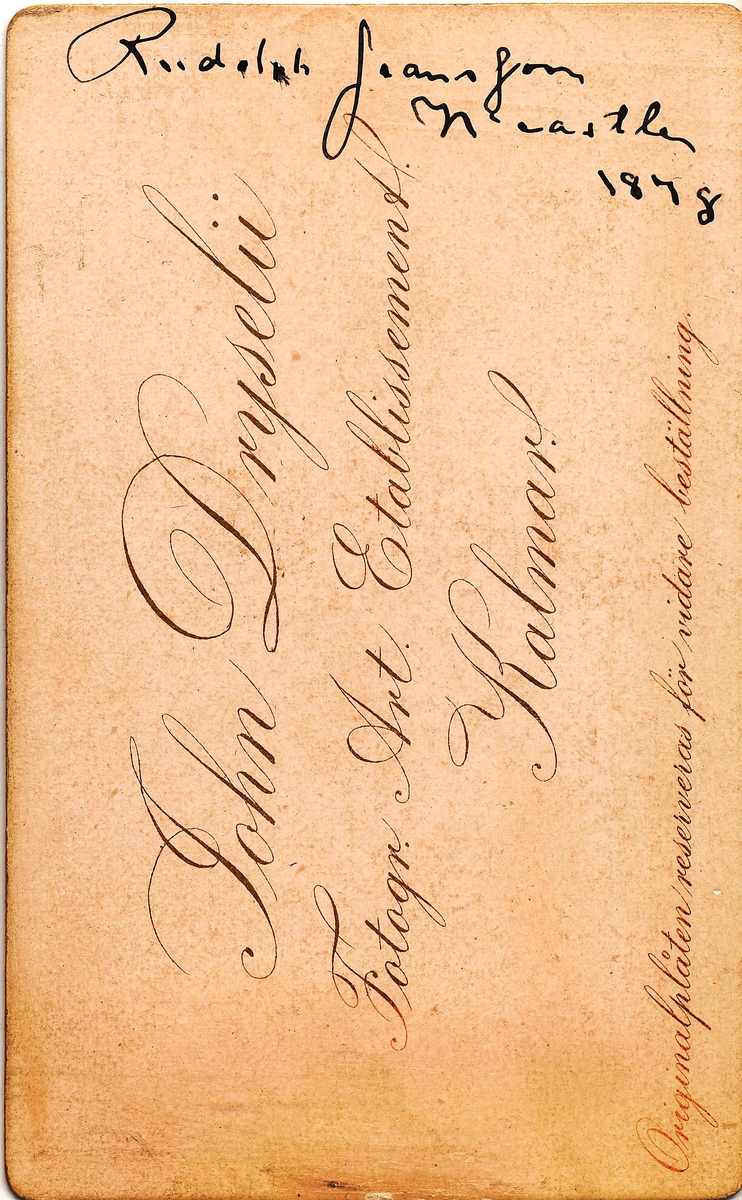 Rudolph Jeansson
Ncastle
1878
John Dryselii
Fotogr. Art. Etablissement.
Kalmar.
Originalplåten reserveras för vidare beställning.